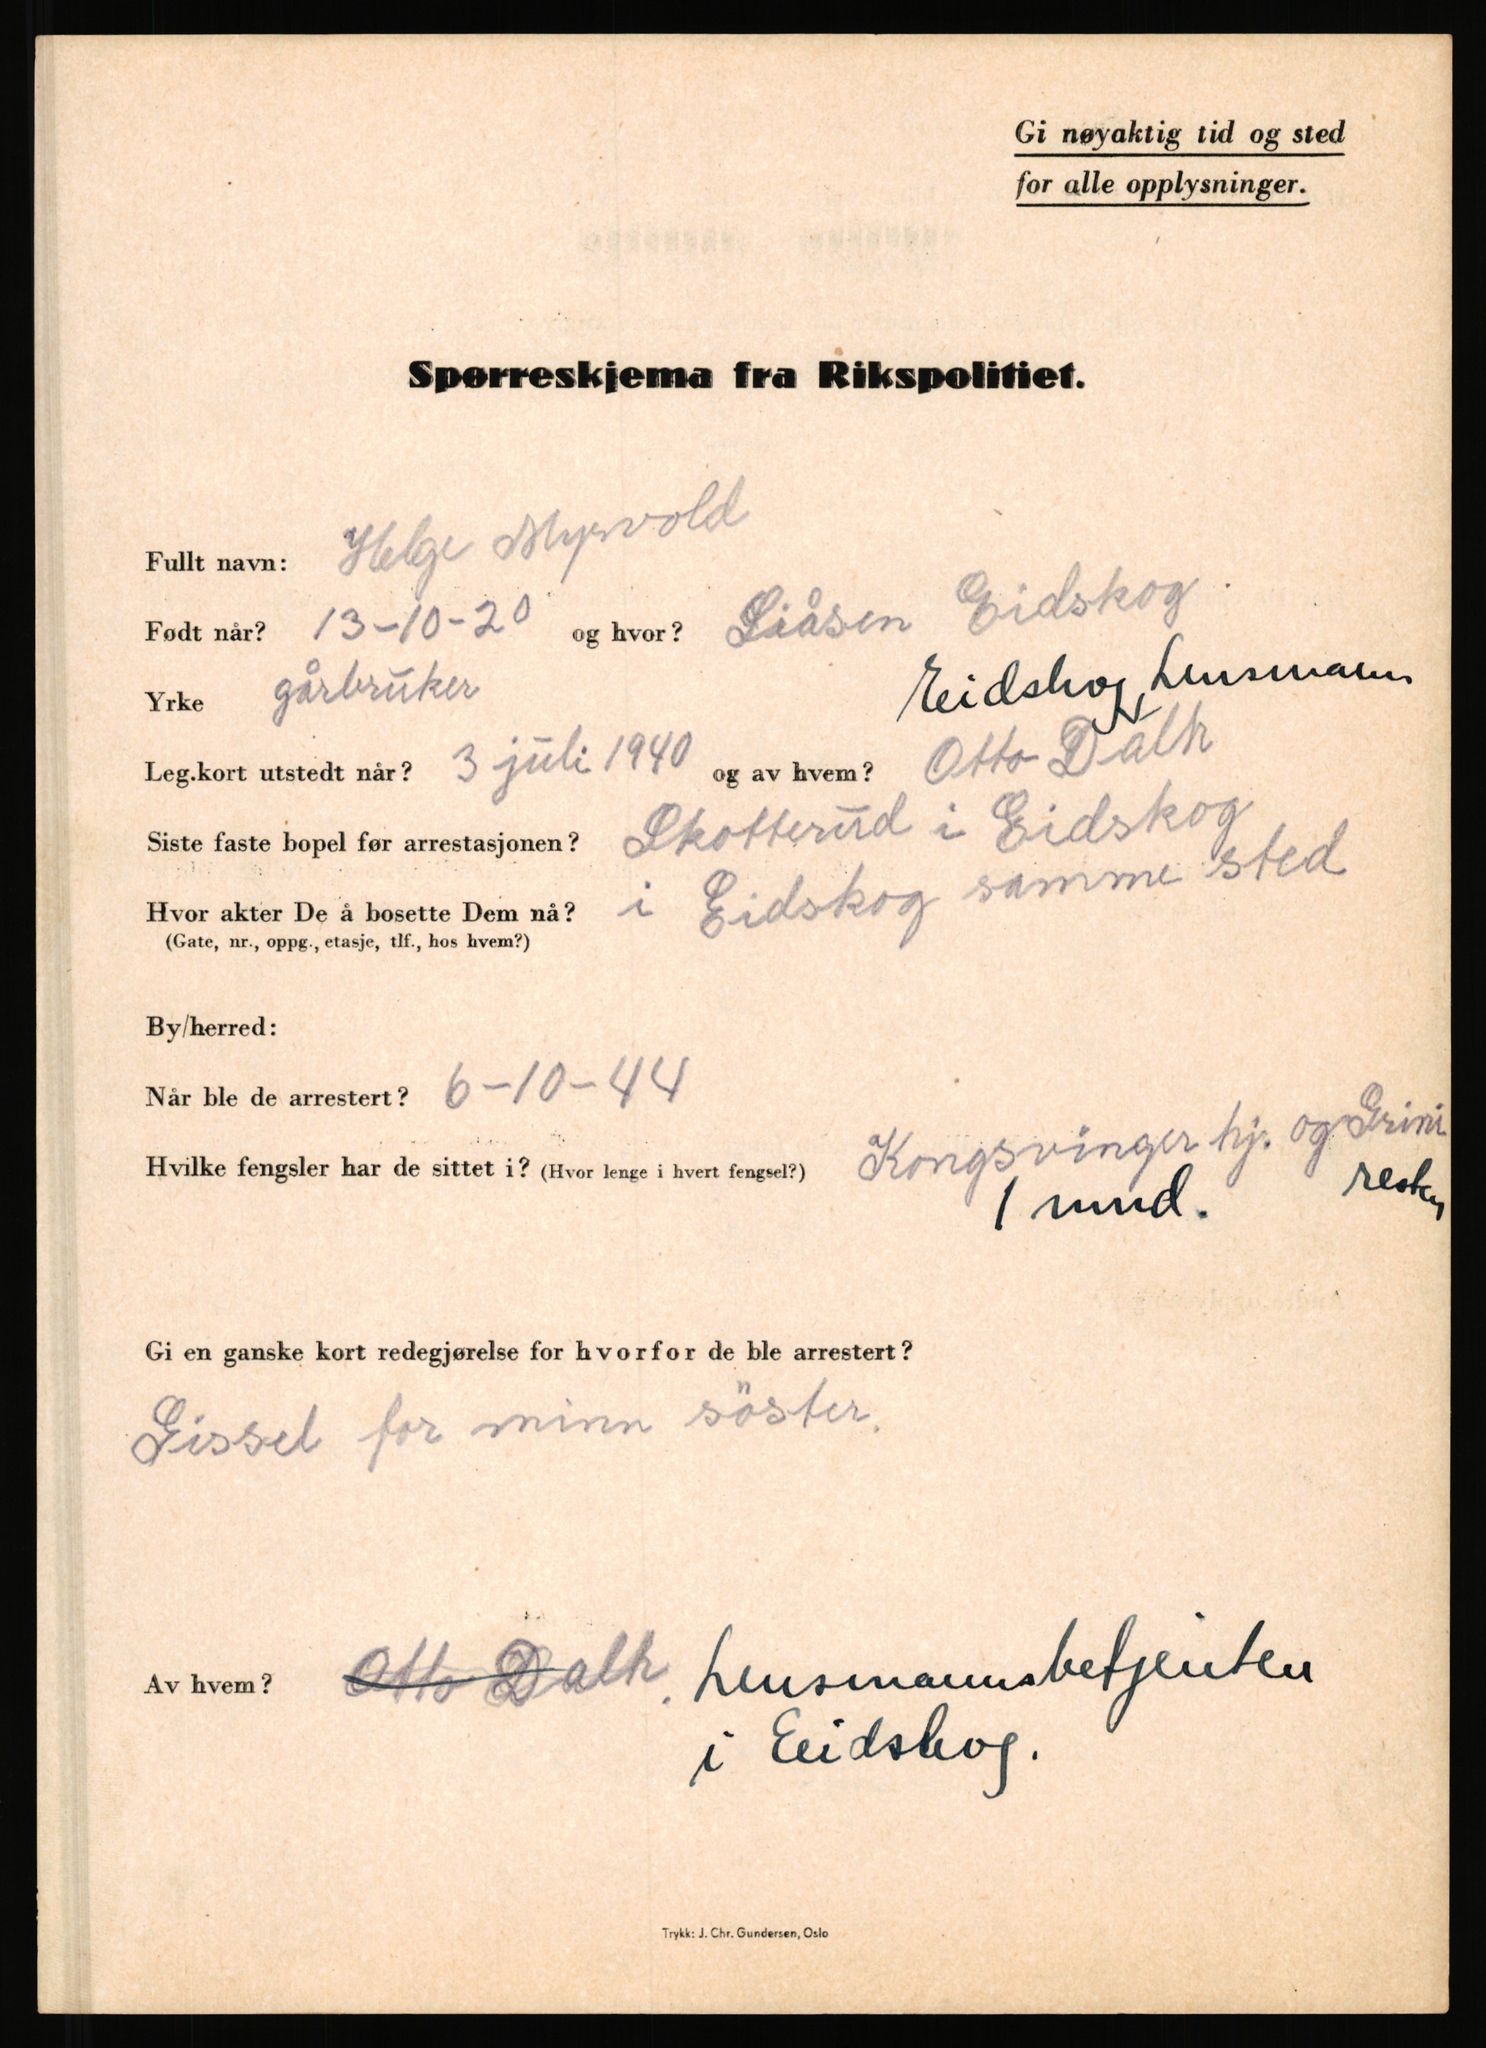 Gi nøyaktig tid og sted
for alle opplysninger.
Spørreskjema fra Rikspolitiet.
Fullt navn: Helge Myrvold
Født når? 13-10-20 og hvor? Liåsen Eidskog.
Yrke gårbruker
Eidskog, Lensmann
Leg.kort utstedt når? 3 juli 1940 og av hvem? Otto Dalh
Siste faste bopel før arrestasjonen? Skotterud i Eidskog
Hvor akter De å bosette Dem nå? i Eidskog samme sted
(Gate, nr., oppg., etasje, tlf., hos hvem?)
By/herred:
Når ble de arrestert? 6-10-44
Hvilke fengsler har de sittet i? (Hvor lenge i hvert fengsel?) Kongsvinger hj. og Grini
1 mnd. resten
Gi en ganske kort redegjørelse for hvorfor de ble arrestert?
Gissel for minn söster.
Av hvem? Otto Dalh, Lensmannsbetjenten
i Eidskog.
Trykk: J. Chr. Gundersen, Oslo